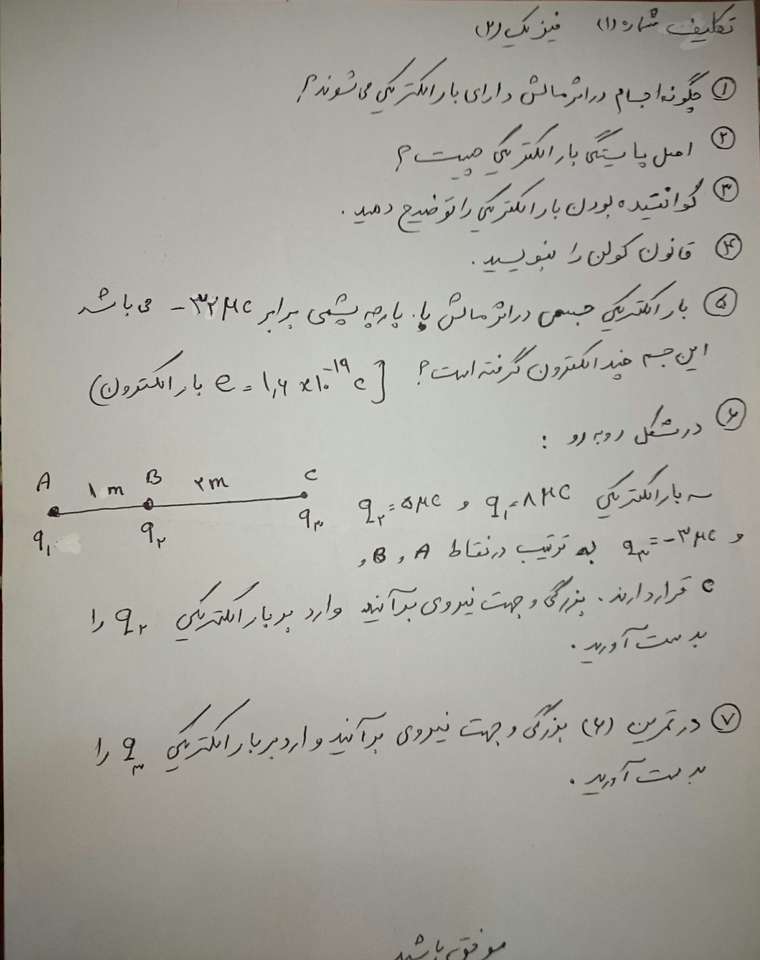 تکلیف شماره (۱) فیزیک (۲)
① چگونه اجسام در اثر مالش دارای بار الکتریکی می‌شوند؟
② اصل پایستگی بار الکتریکی چیست؟
③ کوانتیده بودن بار الکتریکی را توضیح دهید.
④ قانون کولن را بنویسید.
⑤ بار الکتریکی جسمی در اثر مالش با پارچه پشمی برابر -۳۲ μc می باشد
این جسم چند الکترون گرفته است؟ [e = ۱٫۶ × ۱۰⁻¹⁹ c بار الکترون)
⑥ در شکل روبه رو :
A ۱ m B ۲ m C
q₁ q₂ q₃
سه بار الکتریکی q₁ = ۸ μC و q₂ = ۵ μC
و q₃ = -۳ μC به ترتیب در نقاط A و B و
C قرار دارند. بزرگی و جهت نیروی برآیند وارد بر بار الکتریکی q₂ را
بدست آورید.
⑦ در تمرین (۶) بزرگی و جهت نیروی برآیند وارد بر بار الکتریکی q₃ را
بدست آورید.
موفق باشید